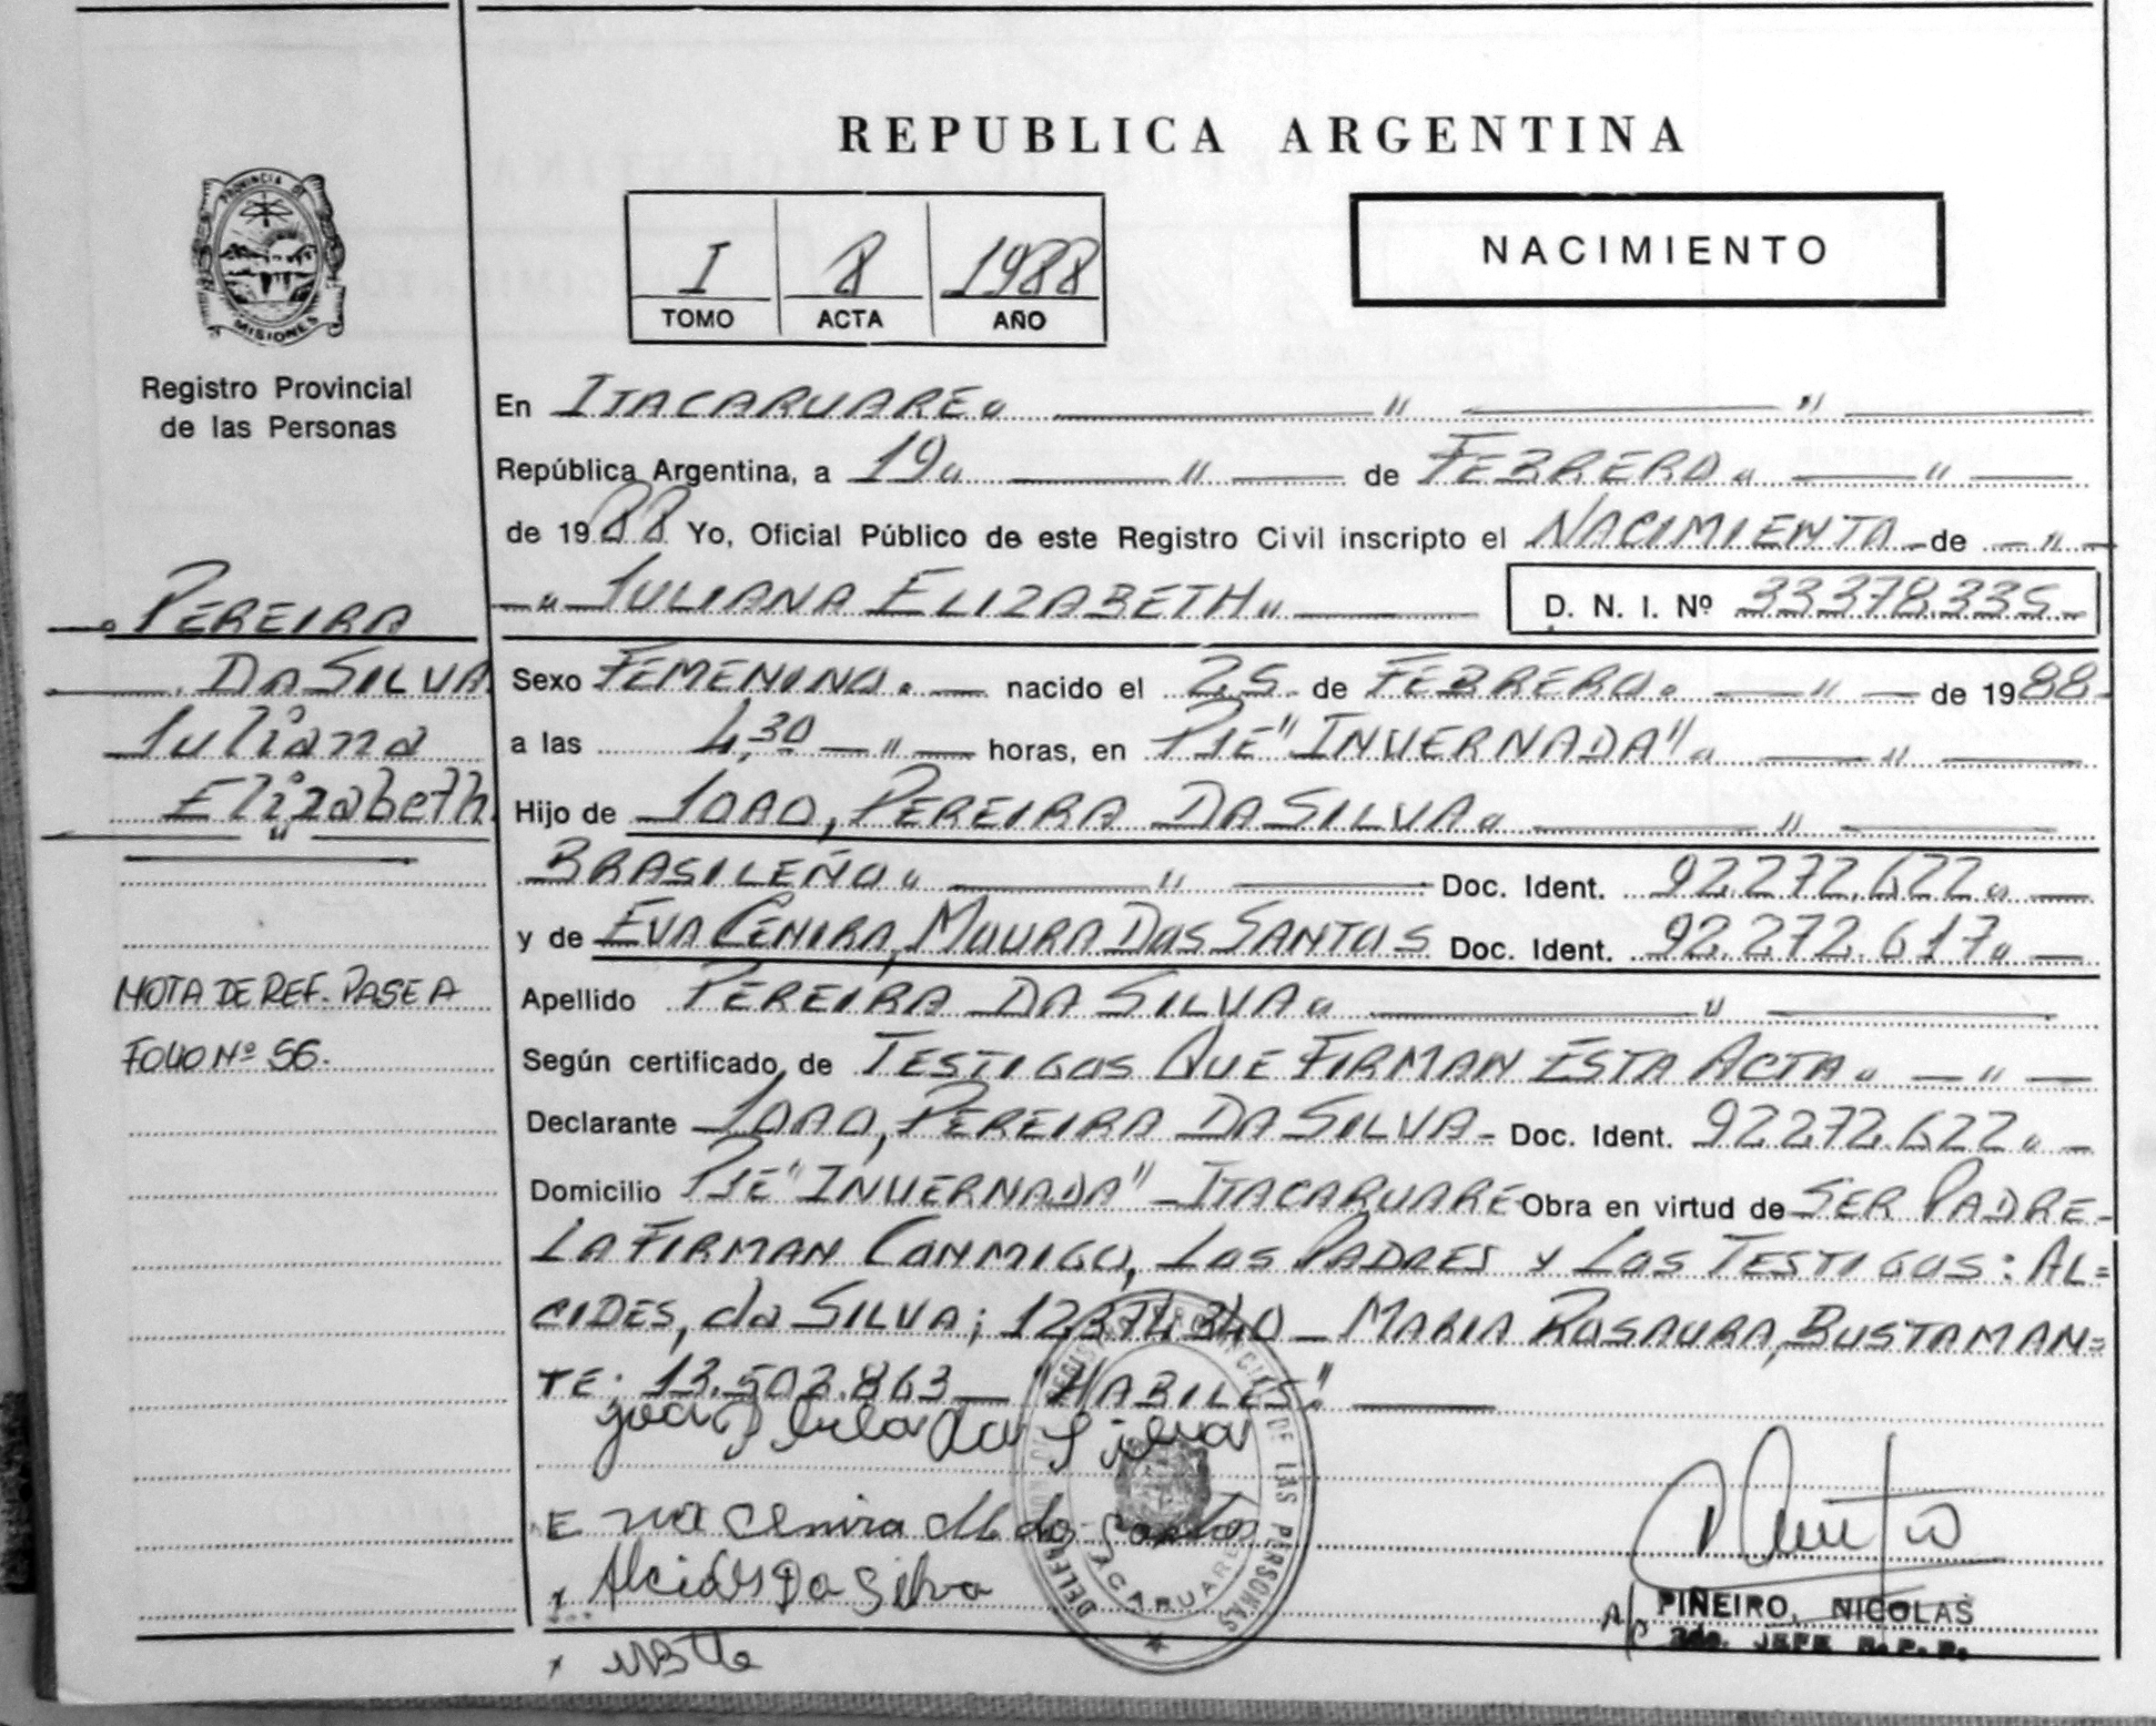 REPUBLICA ARGENTINA
PROVINCIA DE
MISIONES
Registro Provincial
de las Personas
I 8 1988
TOMO ACTA AÑO
NACIMIENTO
En ITACARUARE
República Argentina, a 19 de FEBRERO
de 1988 Yo, Oficial Público de este Registro Civil inscripto el NACIMIENTO de
JULIANA ELIZABETH D. N. I. Nº 33378.335
PEREIRA
DA SILVA
Juliana
Elizabeth
Sexo FEMENINO nacido el 25 de FEBRERO de 1988
a las 4,30 horas, en PJE "INVERNADA"
Hijo de JOAO, PEREIRA DA SILVA
BRASILEÑO Doc. Ident. 92.272.622
y de EVA CENIRA, MOURA DOS SANTOS Doc. Ident. 92.272.617
Apellido PEREIRA DA SILVA
NOTA DE REF. PASE A
FOLIO Nº 56.
Según certificado de TESTIGOS QUE FIRMAN ESTA ACTA
Declarante JOAO, PEREIRA DA SILVA - Doc. Ident. 92272.622
Domicilio PJE "INVERNADA" - ITACARUARE Obra en virtud de SER PADRE-
LA FIRMAN CONMIGO, LOS PADRES Y LOS TESTIGOS: AL=
CIDES, da SILVA; 12374.340 - MARIA ROSAURA, BUSTAMAN=
TE: 13.503.863 - "HABILES"
da Silva
Alcides Da Silva
DE LAS PERSONAS
A/C PIÑEIRO, NICOLAS
2do. JEFE R.P.P.